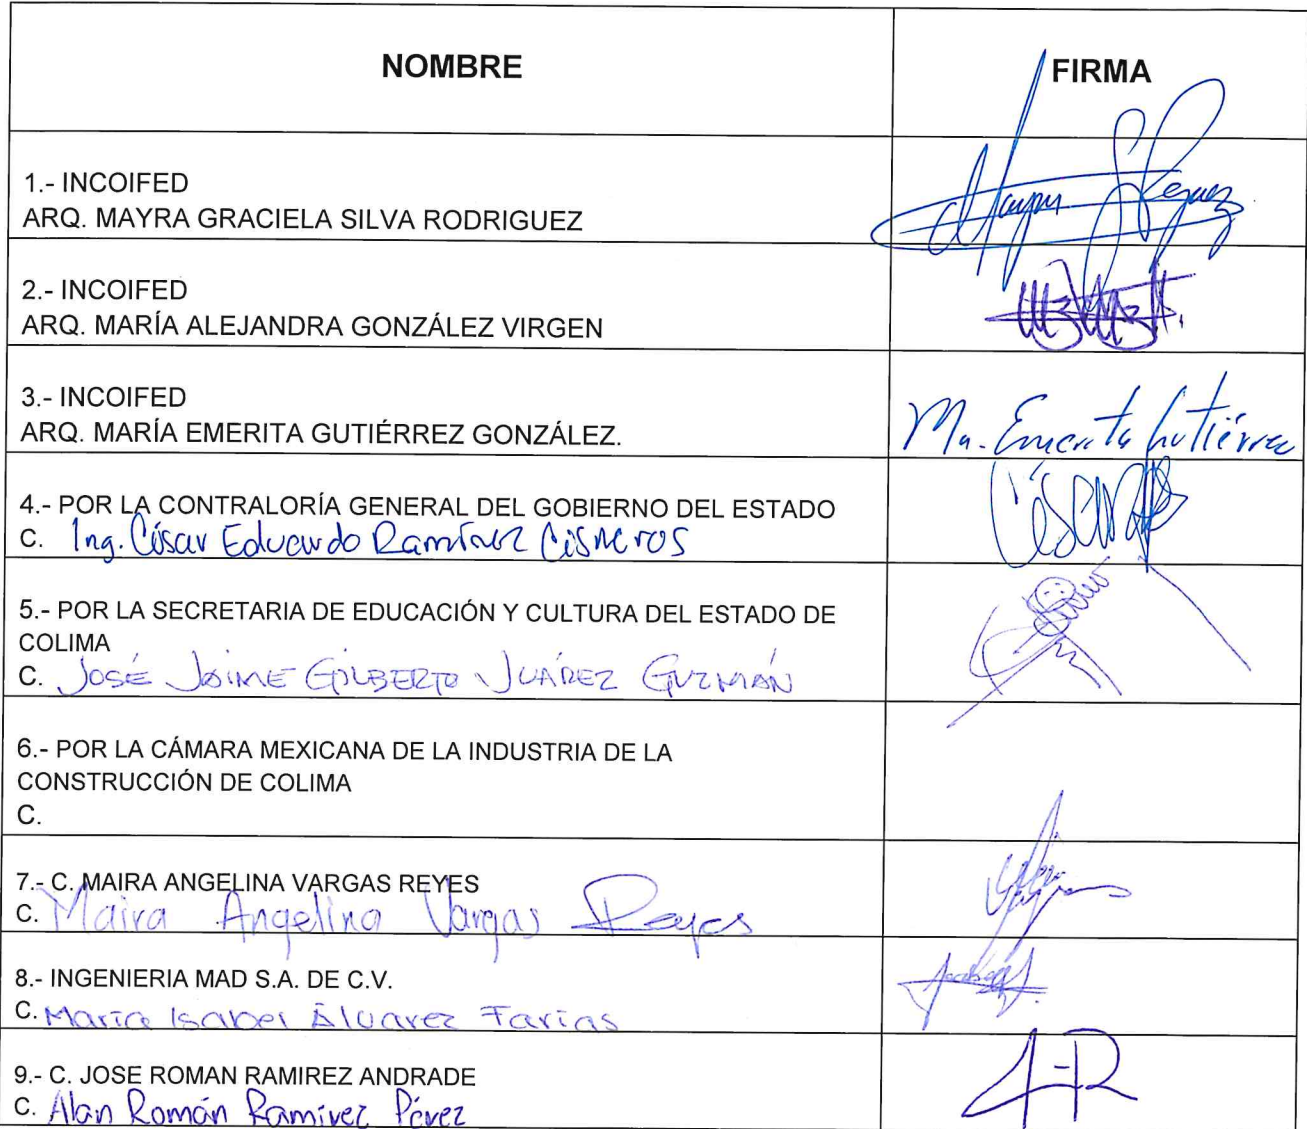 NOMBRE
FIRMA
1.- INCOIFED
ARQ. MAYRA GRACIELA SILVA RODRIGUEZ
2.- INCOIFED
ARQ. MARÍA ALEJANDRA GONZÁLEZ VIRGEN
3.- INCOIFED
ARQ. MARÍA EMERITA GUTIÉRREZ GONZÁLEZ.
Ma. Emerita Gutiérrez
4.- POR LA CONTRALORÍA GENERAL DEL GOBIERNO DEL ESTADO
C. Ing. César Eduardo Ramírez Cisneros
5.- POR LA SECRETARIA DE EDUCACIÓN Y CULTURA DEL ESTADO DE
COLIMA
C. JOSÉ JAIME GILBERTO JUÁREZ GUZMÁN
6.- POR LA CÁMARA MEXICANA DE LA INDUSTRIA DE LA
CONSTRUCCIÓN DE COLIMA
C.
7.- C. MAIRA ANGELINA VARGAS REYES
C. Maira Angelina Vargas Reyes
8.- INGENIERIA MAD S.A. DE C.V.
C. María Isabel Álvarez Farías
9.- C. JOSE ROMAN RAMIREZ ANDRADE
C. Alan Román Ramírez Pérez